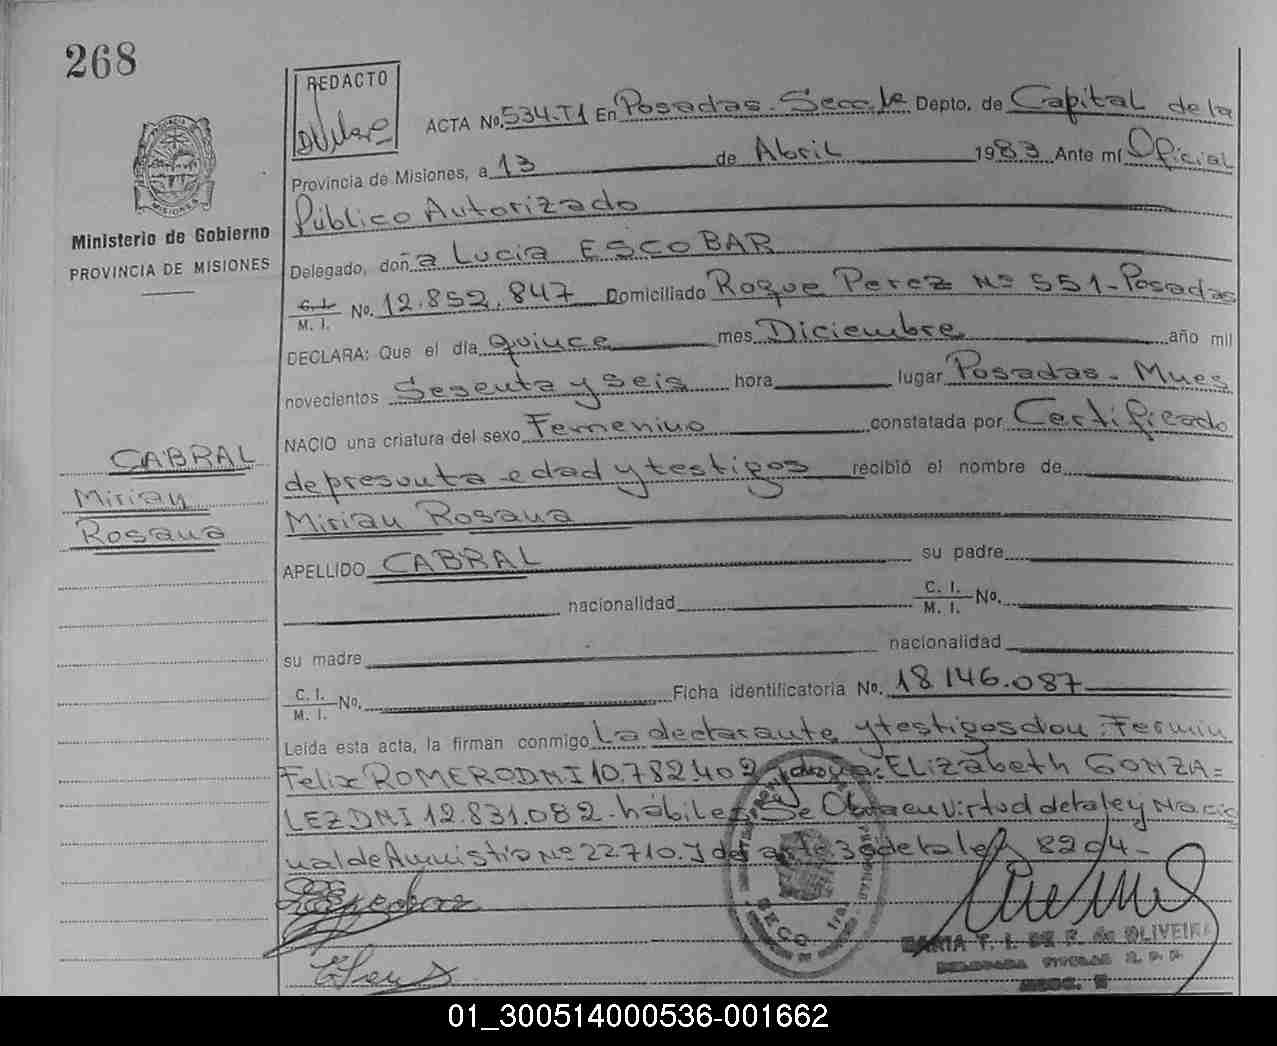 268
REDACTO
ACTA No. 534-T1 En Posadas. Secc. 1a Depto. de Capital de la
Provincia de Misiones, a 13 de Abril 1983 Ante mí Oficial
Público Autorizado
MISIONES
Ministerio de Gobierno
PROVINCIA DE MISIONES
Delegado, doña Lucia ESCOBAR
C. I.
M. I. No. 12.852.847 Domiciliado Roque Perez Nº 551-Posadas
DECLARA: Que el día quince mes Diciembre año mil
novecientos Sesenta y seis hora lugar Posadas - Mnes
NACIO una criatura del sexo Femenino constatada por Certificado
de presunta edad y testigos recibió el nombre de
CABRAL
Mirian
Rosana
Mirian Rosana
APELLIDO CABRAL su padre
nacionalidad C. I.
M. I. No.
su madre nacionalidad
C. I.
M. I. No. Ficha identificatoria No. 18146.087
Leída esta acta, la firman conmigo La declarante y testigos don: Fermin
Felix ROMERO DNI 10.782.402 y doña: ELizabeth GONZA=
LEZ DNI 12.831.082. hábiles. Se Obra en virtud de la ley Nacio
nal de Amnistia Nº 22710. y del art. 30 de la ley 8204-
SECC. 1ra
MARIA T. I. DE F. de OLIVEIRA
DELEGADA TITULAR R. P. P.
01_300514000536-001662